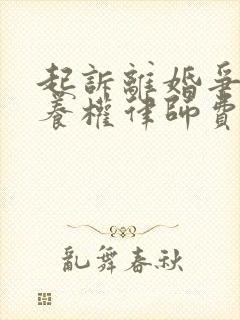 起訴離婚爭
養權律師費
亂舞春秋